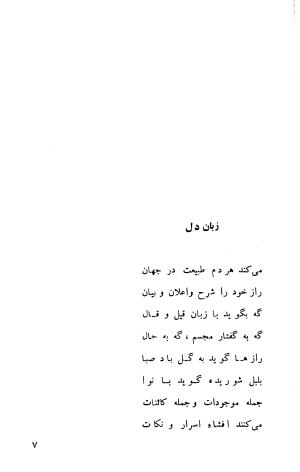 زبان دل
می‌کند هر دم طبیعت در جهان
راز خود را شرح واعلان و بیان
گه بگوید با زبان قیل و قال
گه به گفتار مجسم، گه به حال
رازها گوید به گل باد صبا
بلبل شوریده گوید با نوا
جمله موجودات وجمله کائنات
می‌کنند افشاء اسرار و نکات
۷